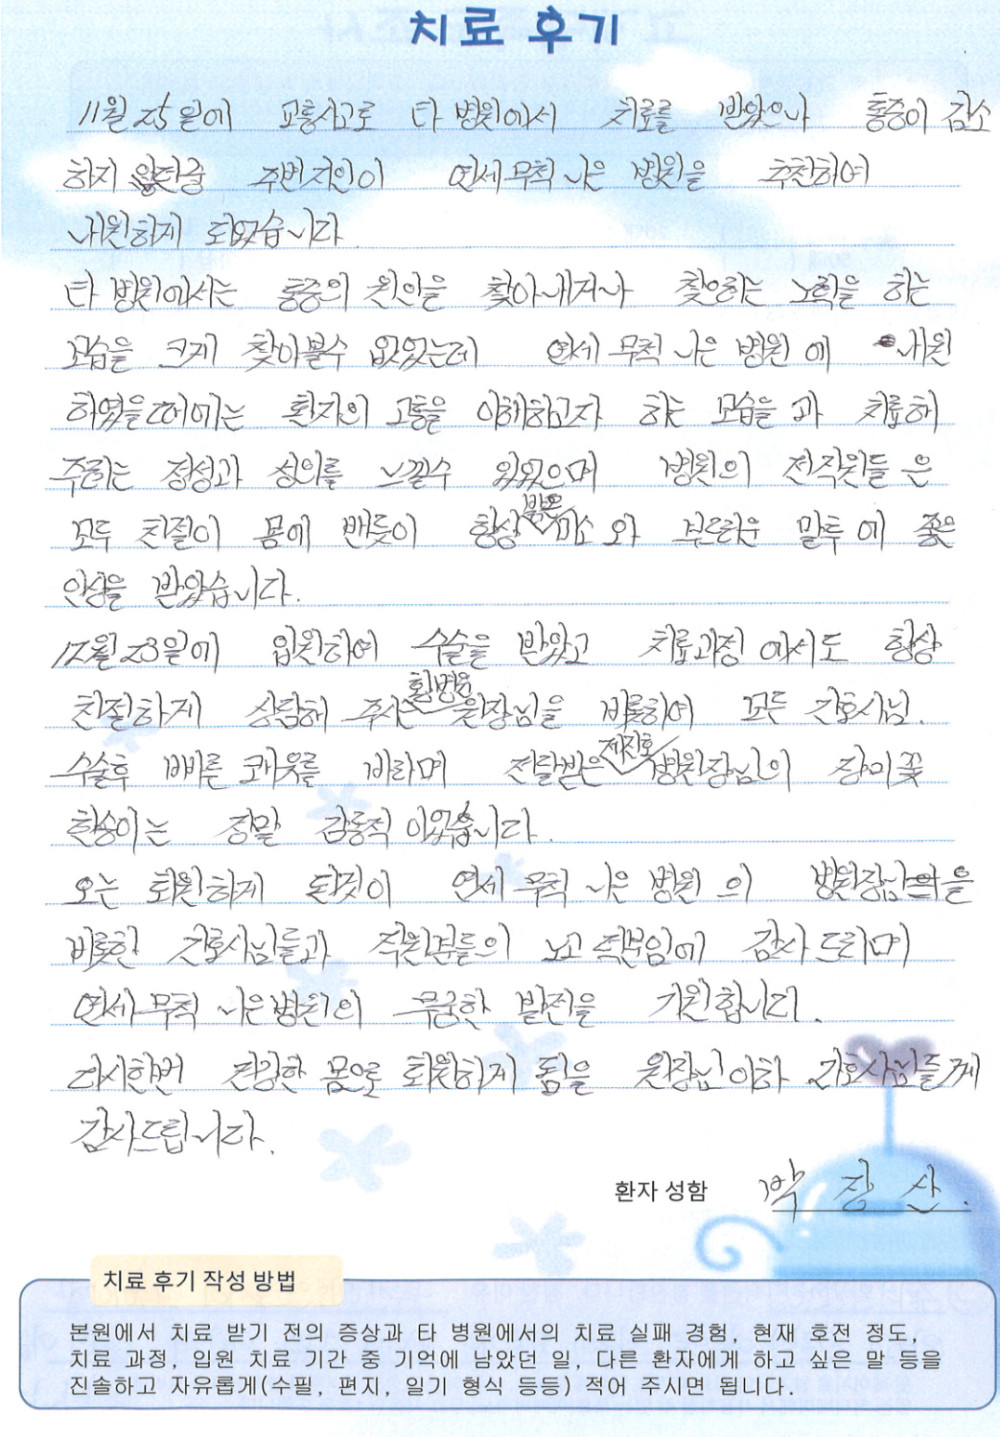 치료 후기
11월 25일에 교통사고로 타 병원에서 치료를 받았으나 통증이 감소
하지 않던중 주변지인이 연세무척나은 병원을 추천하여
내원하게 되었습니다
타 병원에서는 통증의 원인을 찾아내거나 찾으려는 노력을 하는
모습을 크게 찾아볼수 없었는데 연세무척 나은 병원에 내원
하였을때에는 환자의 고통을 이해하고자 하는 모습을 과 치료해
주려는 정성과 성의를 느낄수 있었으며 병원의 전직원들은
모두 친절이 몸에 밴듯이 항상 밝은 미소와 부드러운 말투에 좋은
인상을 받았습니다.
12월 23일에 입원하여 수술을 받았고 치료과정에서도 항상
친절하게 상담해 주시는 원장님을 비롯하여 모든 간호사님.
수술후 빠른 쾌유를 바라며 전달받은 제진호 병원장님의 장미꽃
한송이는 정말 감동적이었습니다.
오는 퇴원하게 된것이 연세무척 나은 병원의 병원장님을
비롯한 간호사님들과 직원분들의 노고 덕분임에 감사드리며
연세무척 나은병원의 무궁한 발전을 기원합니다.
다시한번 건강한 몸으로 퇴원하게 됨을 원장님이하 간호사님들게
감사드립니다.
환자 성함 박 장 산.
치료 후기 작성 방법
본원에서 치료 받기 전의 증상과 타 병원에서의 치료 실패 경험, 현재 호전 정도,
치료 과정, 입원 치료 기간 중 기억에 남았던 일, 다른 환자에게 하고 싶은 말 등을
진솔하고 자유롭게(수필, 편지, 일기 형식 등등) 적어 주시면 됩니다.